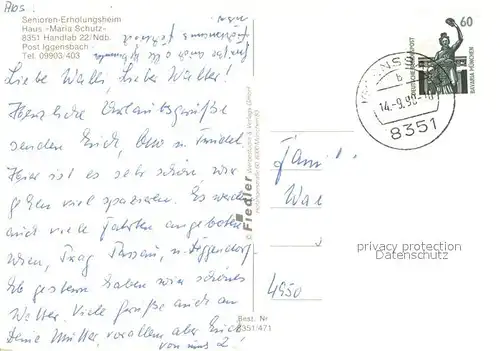 Abs.
Senioren-Erholungsheim
Haus »Maria Schutz«
8351 Handlab 22/Ndb.
Post Iggensbach
Tel. 09903/403
Liebe Walli, lieber Walter!
Herzliche Urlaubsgrüße
senden Euch, Onw u. Friedel.
Hier ist es sehr schön, wir
gehen viel spazieren. Es werden
auch viele Fahrten angeboten
Wien, Prag Passau, u. Deggendorf.
Ab gestern haben wir schönes
Wetter. Viele Grüße auch an
Deine Mutter vor allem aber Euch
von uns 2!
© Fiedler
Best. Nr.
8351/471
60
DEUTSCHE BUNDESPOST
BAVARIA MÜNCHEN
b
14.-9.90
8351
Fami
Wal
4950
privacy protection
Datenschutz